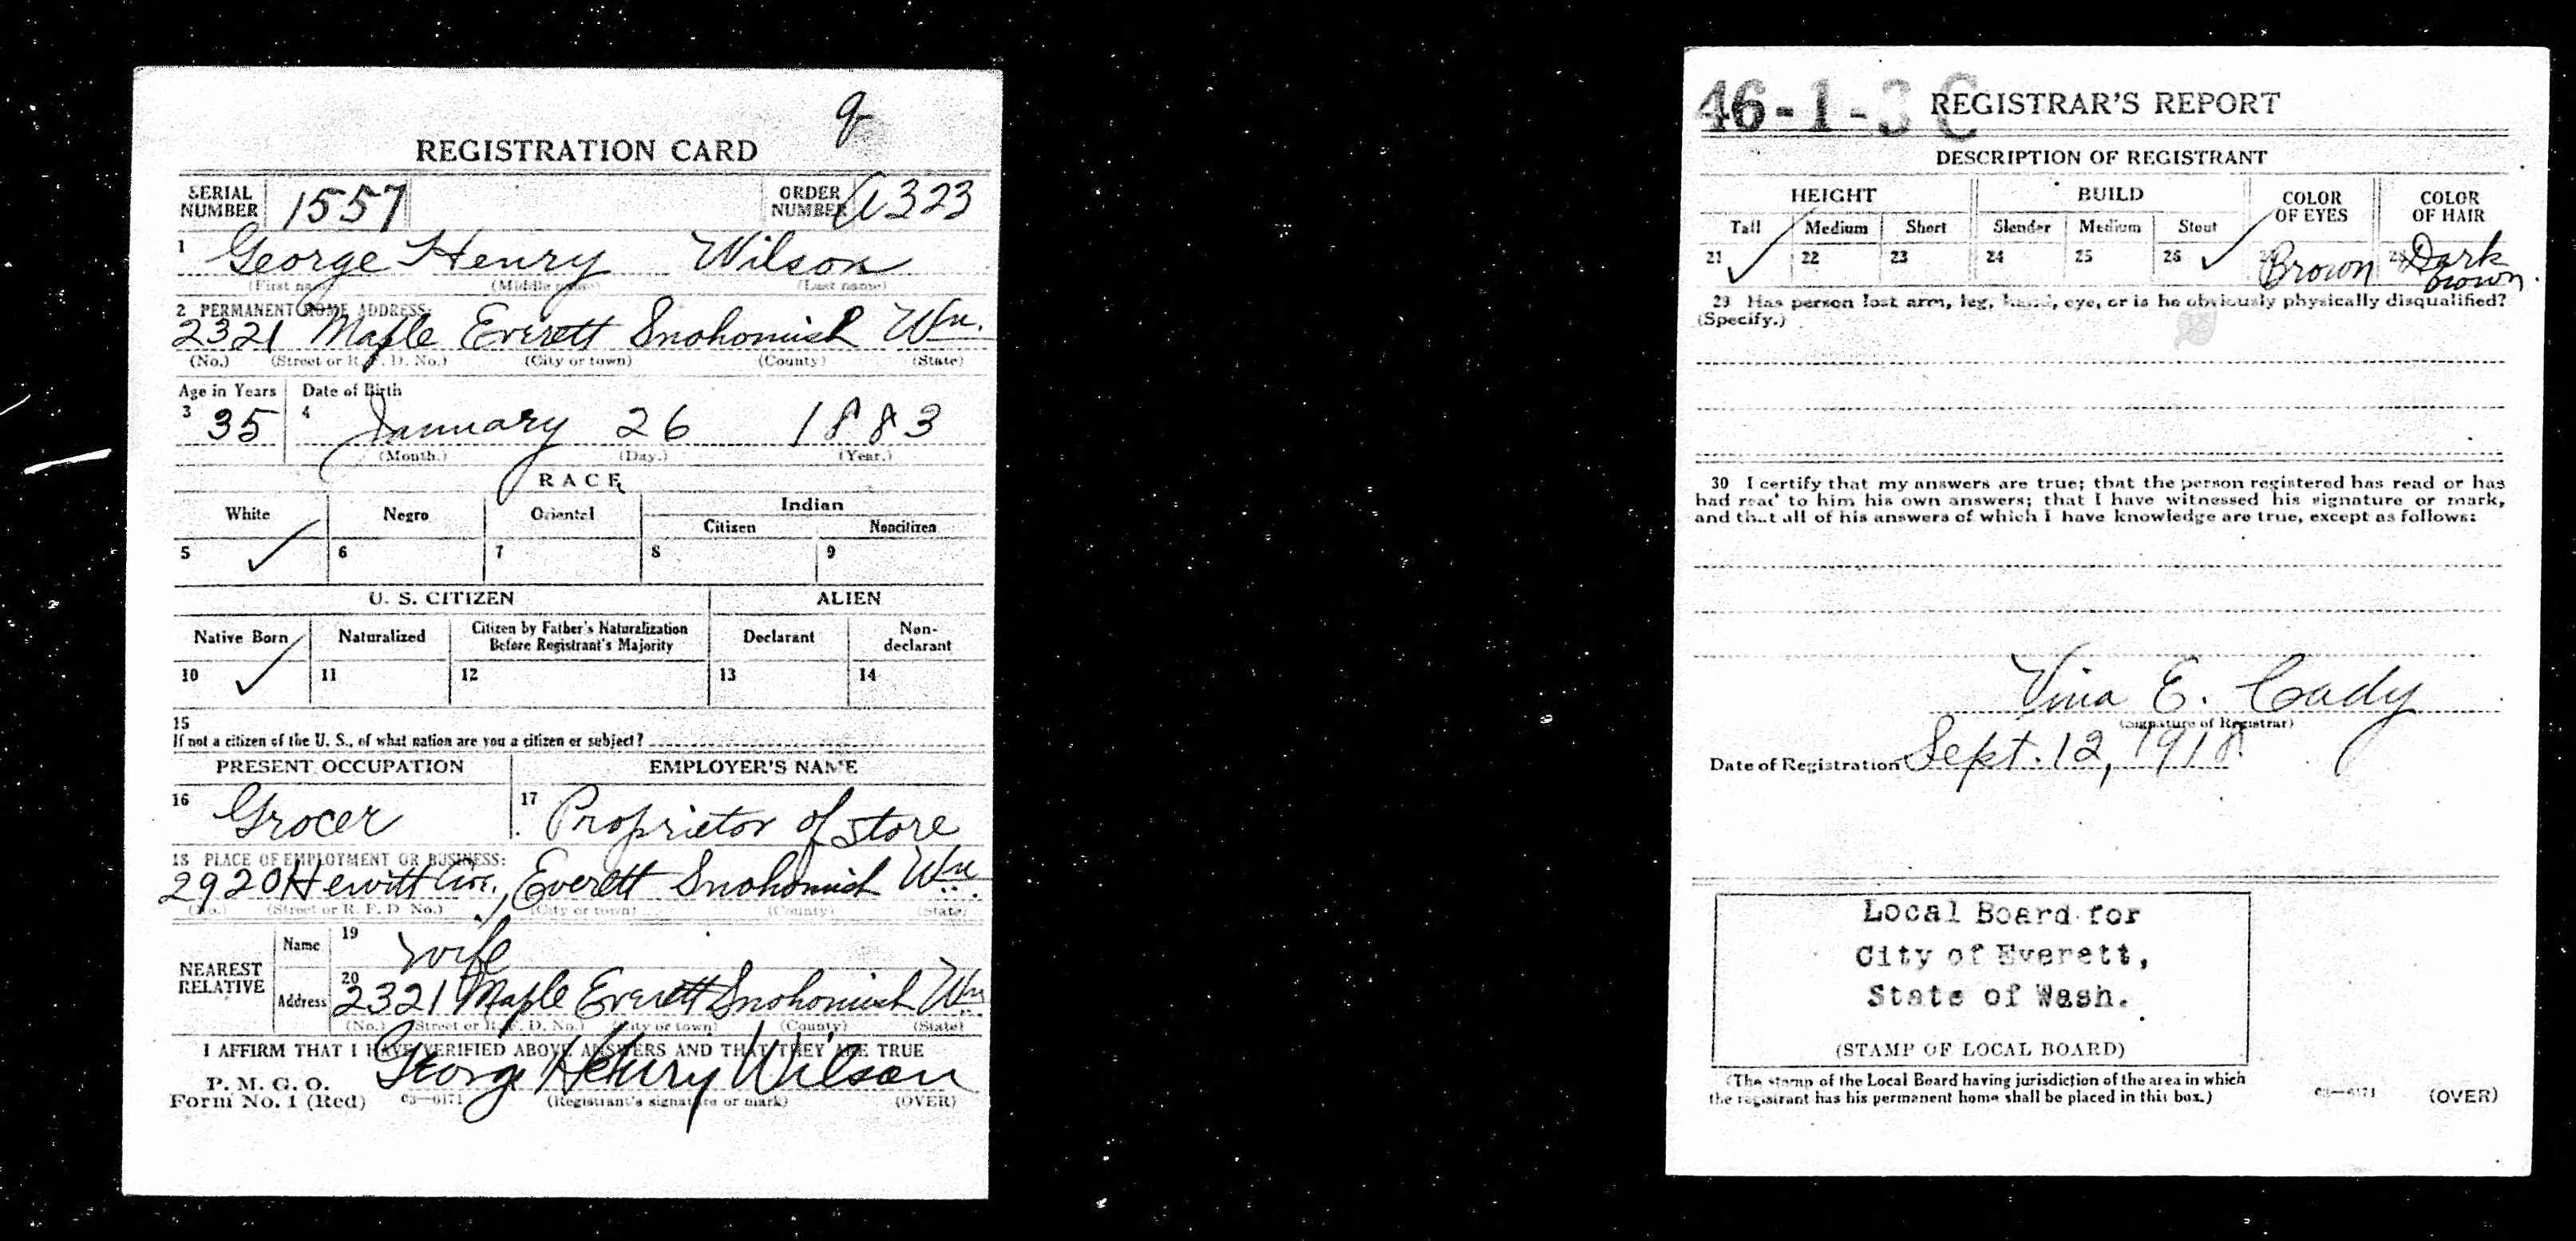 q
REGISTRATION CARD
SERIAL NUMBER 1557 ORDER NUMBER A323
1 George Henry Wilson
(First name) (Middle name) (Last name)
2 PERMANENT HOME ADDRESS:
2321 Maple Everett Snohomish Wn.
(No.) (Street or R. F. D. No.) (City or town) (County) (State)
Age in Years Date of Birth
3 35 4 January 26 1883
(Month.) (Day.) (Year.)
RACE
White Negro Oriental Indian
Citizen Noncitizen
5 ✓ 6 7 8 9
U. S. CITIZEN ALIEN
Native Born Naturalized Citizen by Father's Naturalization Before Registrant's Majority Declarant Non-declarant
10 ✓ 11 12 13 14
15
If not a citizen of the U. S., of what nation are you a citizen or subject?
PRESENT OCCUPATION EMPLOYER'S NAME
16 Grocer 17 Proprietor of store
18 PLACE OF EMPLOYMENT OR BUSINESS:
2920 Hewitt Ave., Everett Snohomish Wn.
(No.) (Street or R. F. D. No.) (City or town) (County) (State)
NEAREST RELATIVE Name 19 wife
Address 20 2321 Maple Everett Snohomish Wn
(No.) (Street or R. F. D. No.) (City or town) (County) (State)
I AFFIRM THAT I HAVE VERIFIED ABOVE ANSWERS AND THAT THEY ARE TRUE
P. M. G. O.
Form No. 1 (Red) 03—6171 George Henry Wilson
(Registrant's signature or mark) (OVER)
46-1-3 C REGISTRAR'S REPORT
DESCRIPTION OF REGISTRANT
HEIGHT BUILD COLOR OF EYES COLOR OF HAIR
Tall Medium Short Slender Medium Stout
21 ✓ 22 23 24 25 26 ✓ Brown Dark brown.
29 Has person lost arm, leg, hand, eye, or is he obviously physically disqualified?
(Specify.)
30 I certify that my answers are true; that the person registered has read or has
had read to him his own answers; that I have witnessed his signature or mark,
and that all of his answers of which I have knowledge are true, except as follows:
Vina E. Cady
(Signature of Registrar)
Date of Registration Sept. 12, 1918
Local Board for
City of Everett,
State of Wash.
(STAMP OF LOCAL BOARD)
(The stamp of the Local Board having jurisdiction of the area in which
the registrant has his permanent home shall be placed in this box.)
03—6171 (OVER)